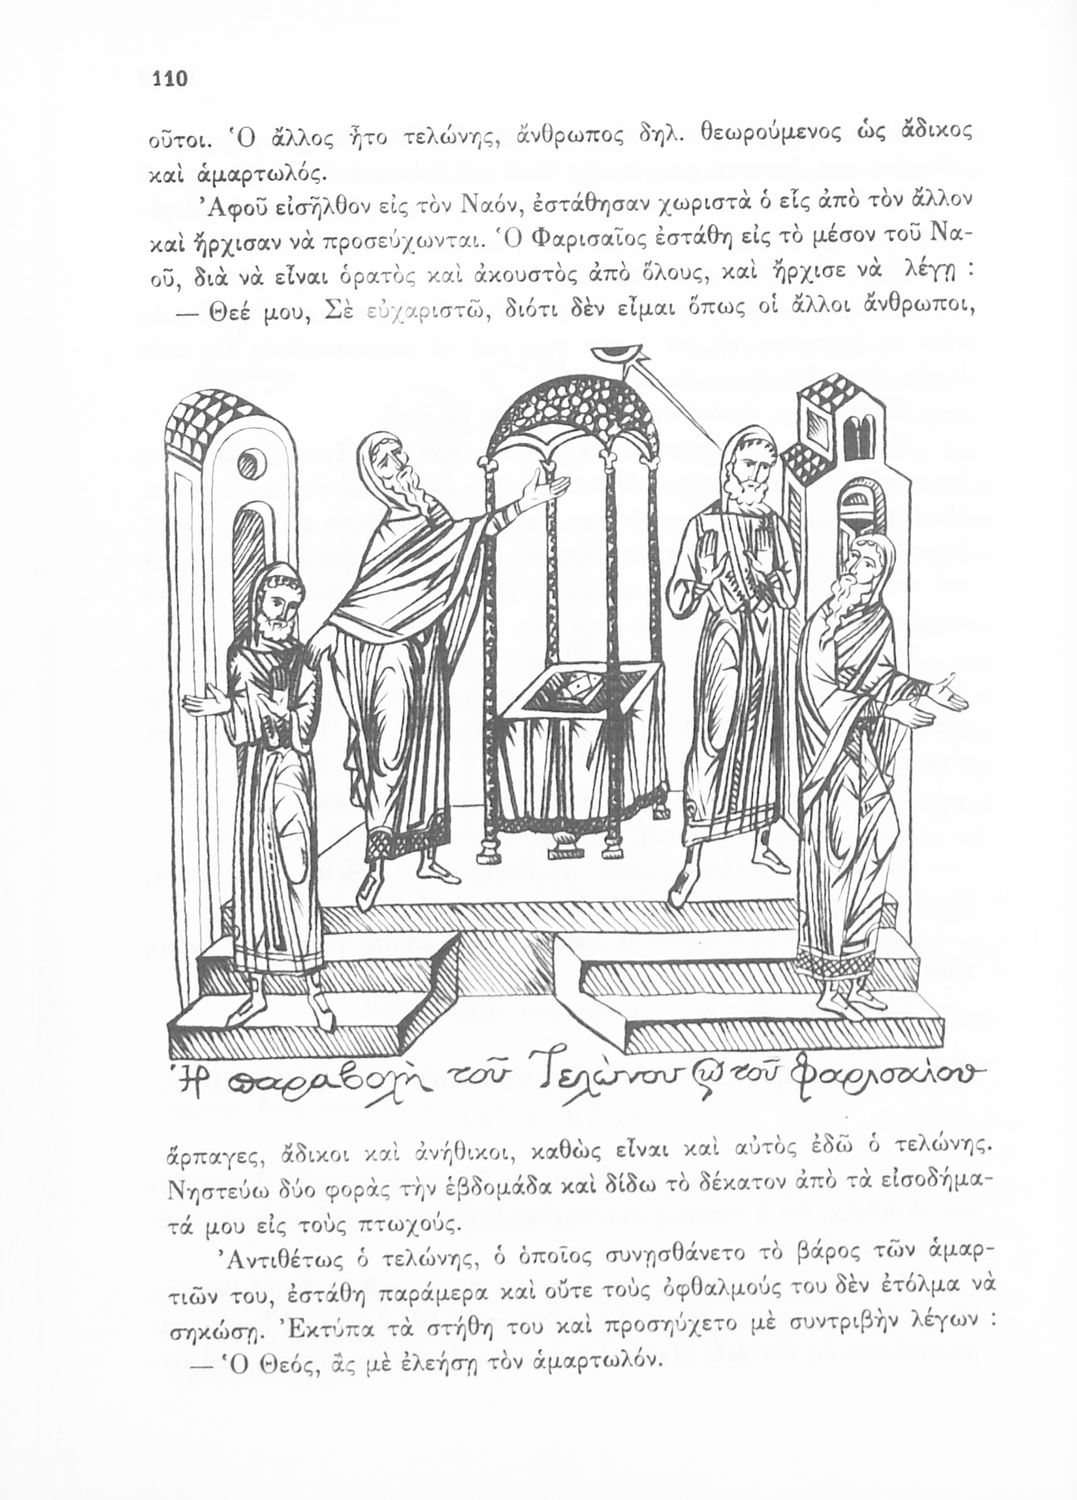 110
οὗτοι. Ὁ ἄλλος ἦτο τελώνης, ἄνθρωπος δηλ. θεωρούμενος ὡς ἄδικος
καὶ ἁμαρτωλός.
Ἀφοῦ εἰσῆλθον εἰς τὸν Ναόν, ἐστάθησαν χωριστὰ ὁ εἷς ἀπὸ τὸν ἄλλον
καὶ ἤρχισαν νὰ προσεύχωνται. Ὁ Φαρισαῖος ἐστάθη εἰς τὸ μέσον τοῦ Να-
οῦ, διὰ νὰ εἶναι ὁρατὸς καὶ ἀκουστὸς ἀπὸ ὅλους, καὶ ἤρχισε νὰ λέγῃ :
— Θεέ μου, Σὲ εὐχαριστῶ, διότι δὲν εἶμαι ὅπως οἱ ἄλλοι ἄνθρωποι,
Ἡ παραβολὴ τοῦ Τελώνου ϗ τοῦ Φαρισαίου
ἅρπαγες, ἄδικοι καὶ ἀνήθικοι, καθὼς εἶναι καὶ αὐτὸς ἐδῶ ὁ τελώνης.
Νηστεύω δύο φορὰς τὴν ἑβδομάδα καὶ δίδω τὸ δέκατον ἀπὸ τὰ εἰσοδήμα-
τά μου εἰς τοὺς πτωχούς.
Ἀντιθέτως ὁ τελώνης, ὁ ὁποῖος συνῃσθάνετο τὸ βάρος τῶν ἁμαρ-
τιῶν του, ἐστάθη παράμερα καὶ οὔτε τοὺς ὀφθαλμούς του δὲν ἐτόλμα νὰ
σηκώσῃ. Ἐκτύπα τὰ στήθη του καὶ προσηύχετο μὲ συντριβὴν λέγων :
— Ὁ Θεός, ἂς μὲ ἐλεήσῃ τὸν ἁμαρτωλόν.